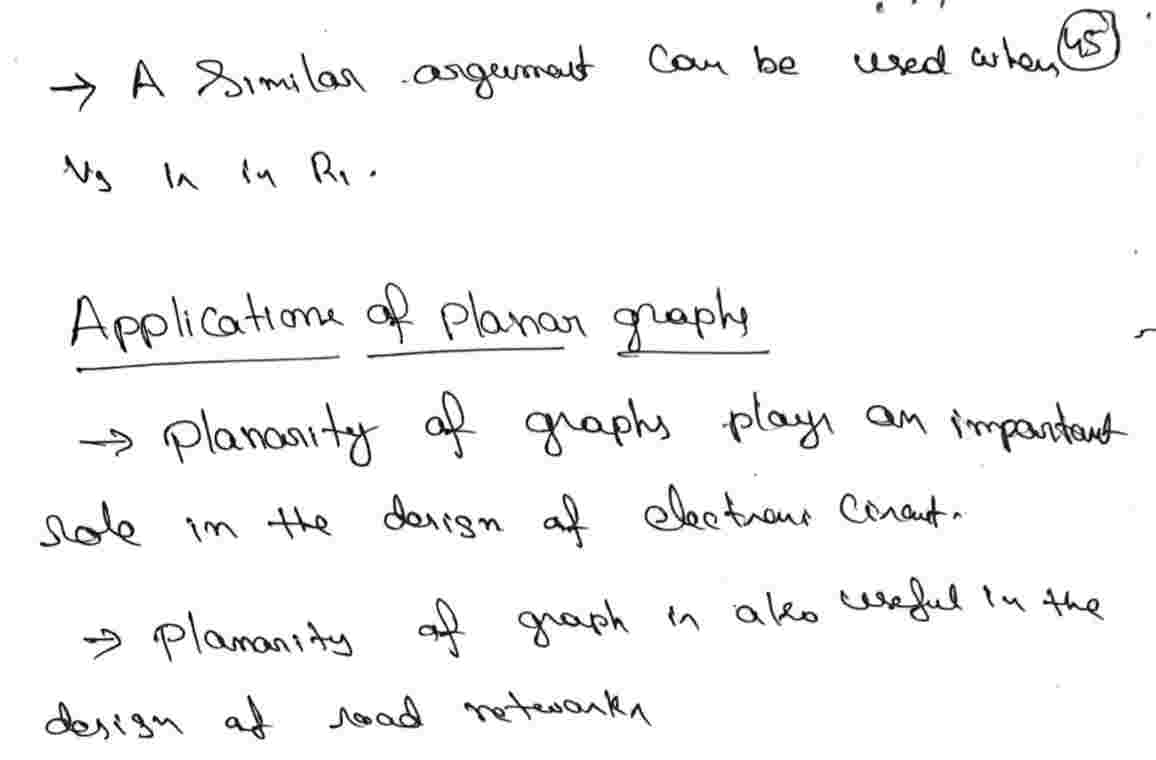 → A Similar argument can be used when 45
V3 is in R1.
Applications of planar graphs
→ Planarity of graphs plays an important
role in the design of electronic circuit.
→ Planarity of graph is also useful in the
design of road networks